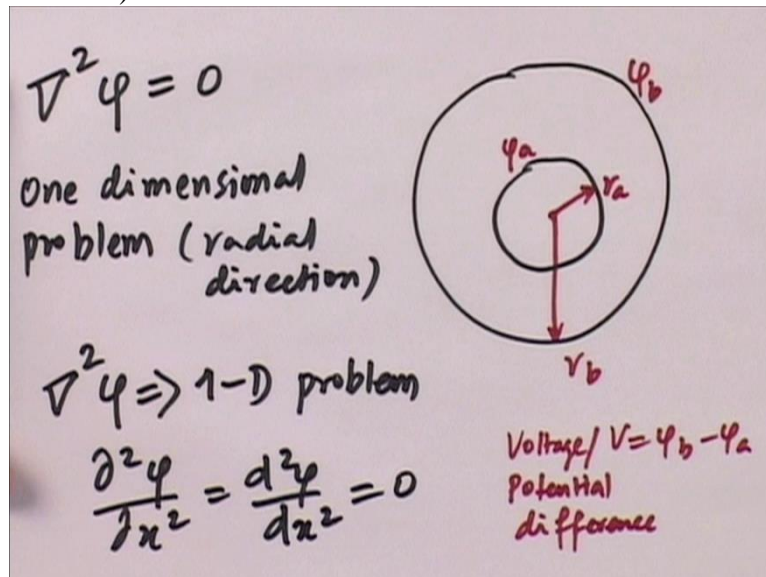 ∇²φ = 0
One dimensional
problem (radial
direction)
∇²φ => 1-D problem
∂²φ/∂x² = d²φ/dx² = 0
φb
φa
ra
rb
Voltage/ V = φb - φa
Potential
difference